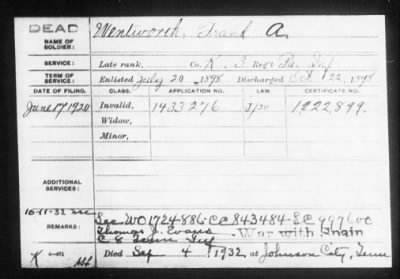 DEAD
NAME OF SOLDIER: Wentworth, Frank A.
SERVICE: Late rank, Co. K, 3 Reg't Pa. Inf
TERM OF SERVICE: Enlisted July 20, 1898 Discharged Oct 22, 1898
DATE OF FILING. CLASS. APPLICATION NO. LAW. CERTIFICATE NO.
June 17, 1920 Invalid, 1433276 1222,899.
Widow,
Minor,
ADDITIONAL SERVICES:
10-11-32
REMARKS: See WO 1724886-CC 843484-SC
Thomas J. Evans War with Spain
C 8 Tenn Inf
K Died Sep 4, 1932, at Johnson City, Tenn